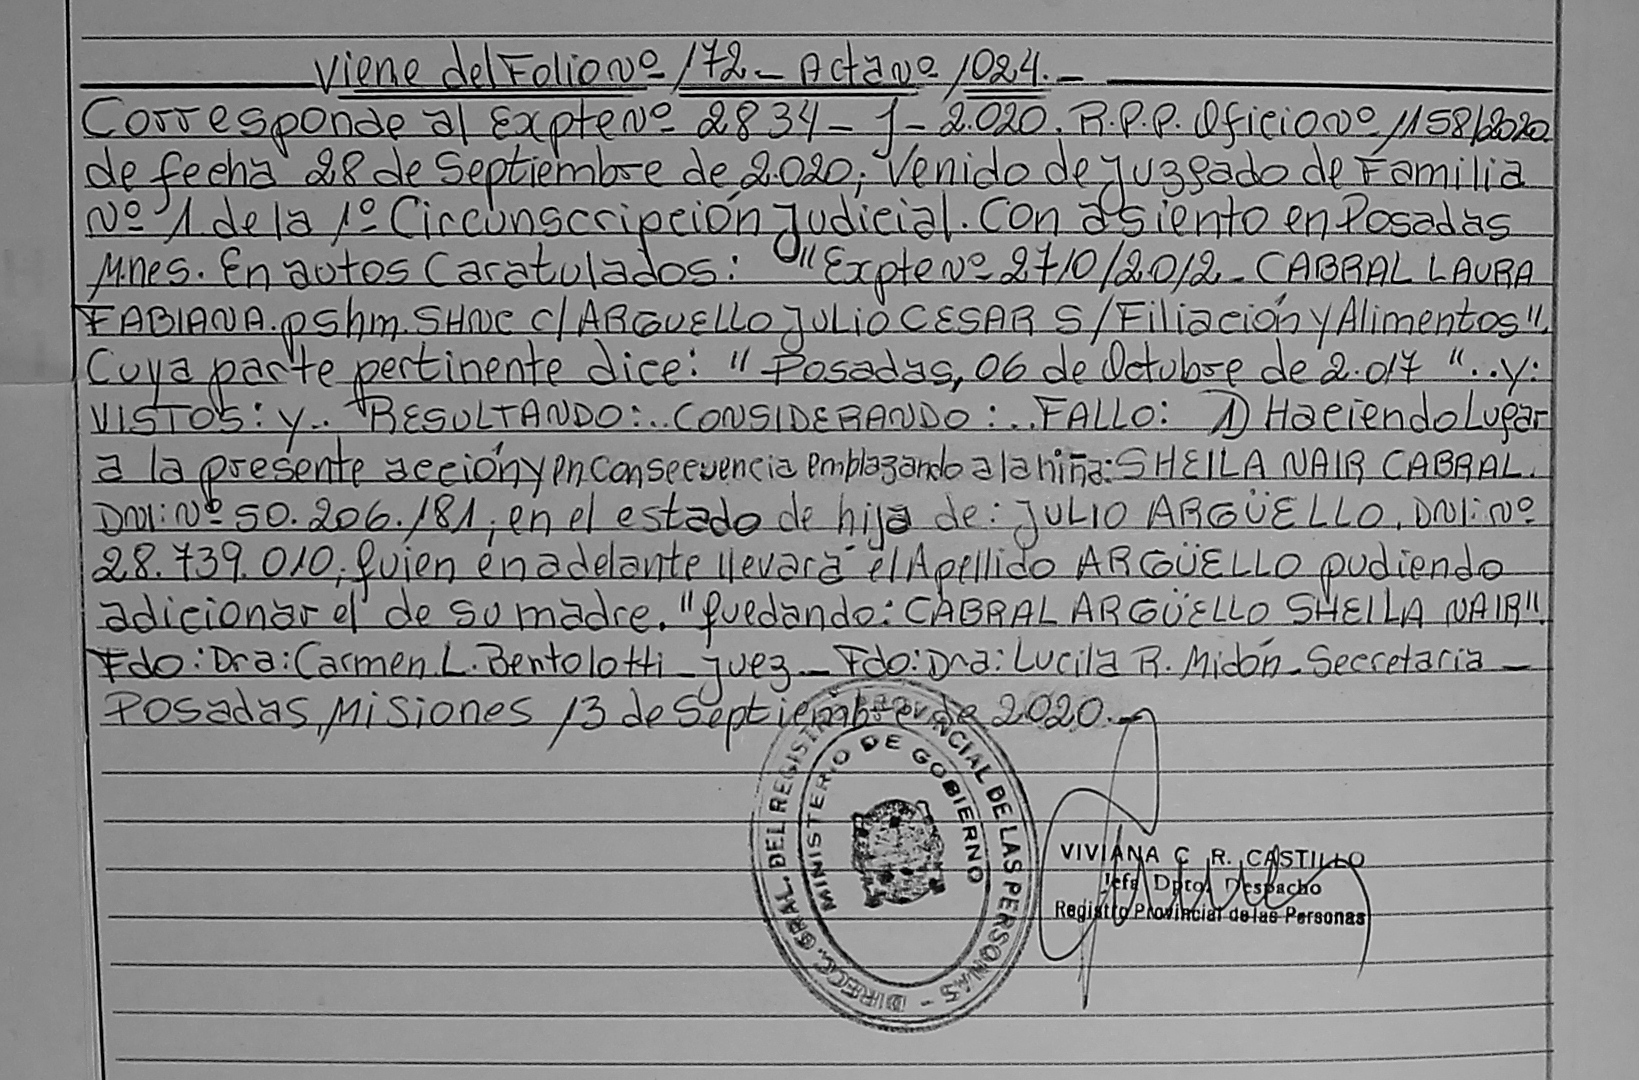 Viene del Folio Nº 172 - Acta Nº 1024.-
Corresponde al Expte Nº 2834 - J - 2.020. R.P.P. Oficio Nº 1158/2020
de fecha 28 de Septiembre de 2.020; Venido de Juzgado de Familia
Nº 1 de la 1º Circunscripción Judicial. Con asiento en Posadas
Mnes. En autos Caratulados: "Expte Nº 2710/2012 - CABRAL LAURA
FABIANA. pshm. SHNC c/ ARGUELLO JULIO CESAR S/Filiación y Alimentos".
Cuya parte pertinente dice: "Posadas, 06 de Octubre de 2.017 "..y:
VISTOS: y.. RESULTANDO:..CONSIDERANDO:..FALLO: 1) Haciendo Lugar
a la presente acción y en Consecuencia emplazando a la niña: SHEILA NAIR CABRAL.
DNI: Nº 50.206.181; en el estado de hija de: JULIO ARGÜELLO. DNI: Nº
28.739.010; quien en adelante llevará el Apellido ARGÜELLO pudiendo
adicionar el de su madre. "quedando: CABRAL ARGÜELLO SHEILA NAIR".
Fdo: Dra: Carmen. L. Bentolotti - Juez - Fdo: Dra: Lucila R. Midón - Secretaria -
Posadas, Misiones 13 de Septiembre de 2020.-
DIRECC. GRAL. DEL REGISTRO PROVINCIAL DE LAS PERSONAS -
MINISTERIO DE GOBIERNO
VIVIANA C. R. CASTILLO
Jefa Dpto. Despacho
Registro Provincial de las Personas